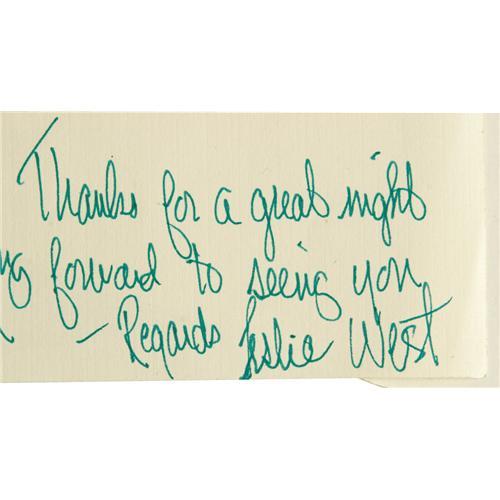 Thanks for a great night
ng forward to seeing you
- Regards Leslie West